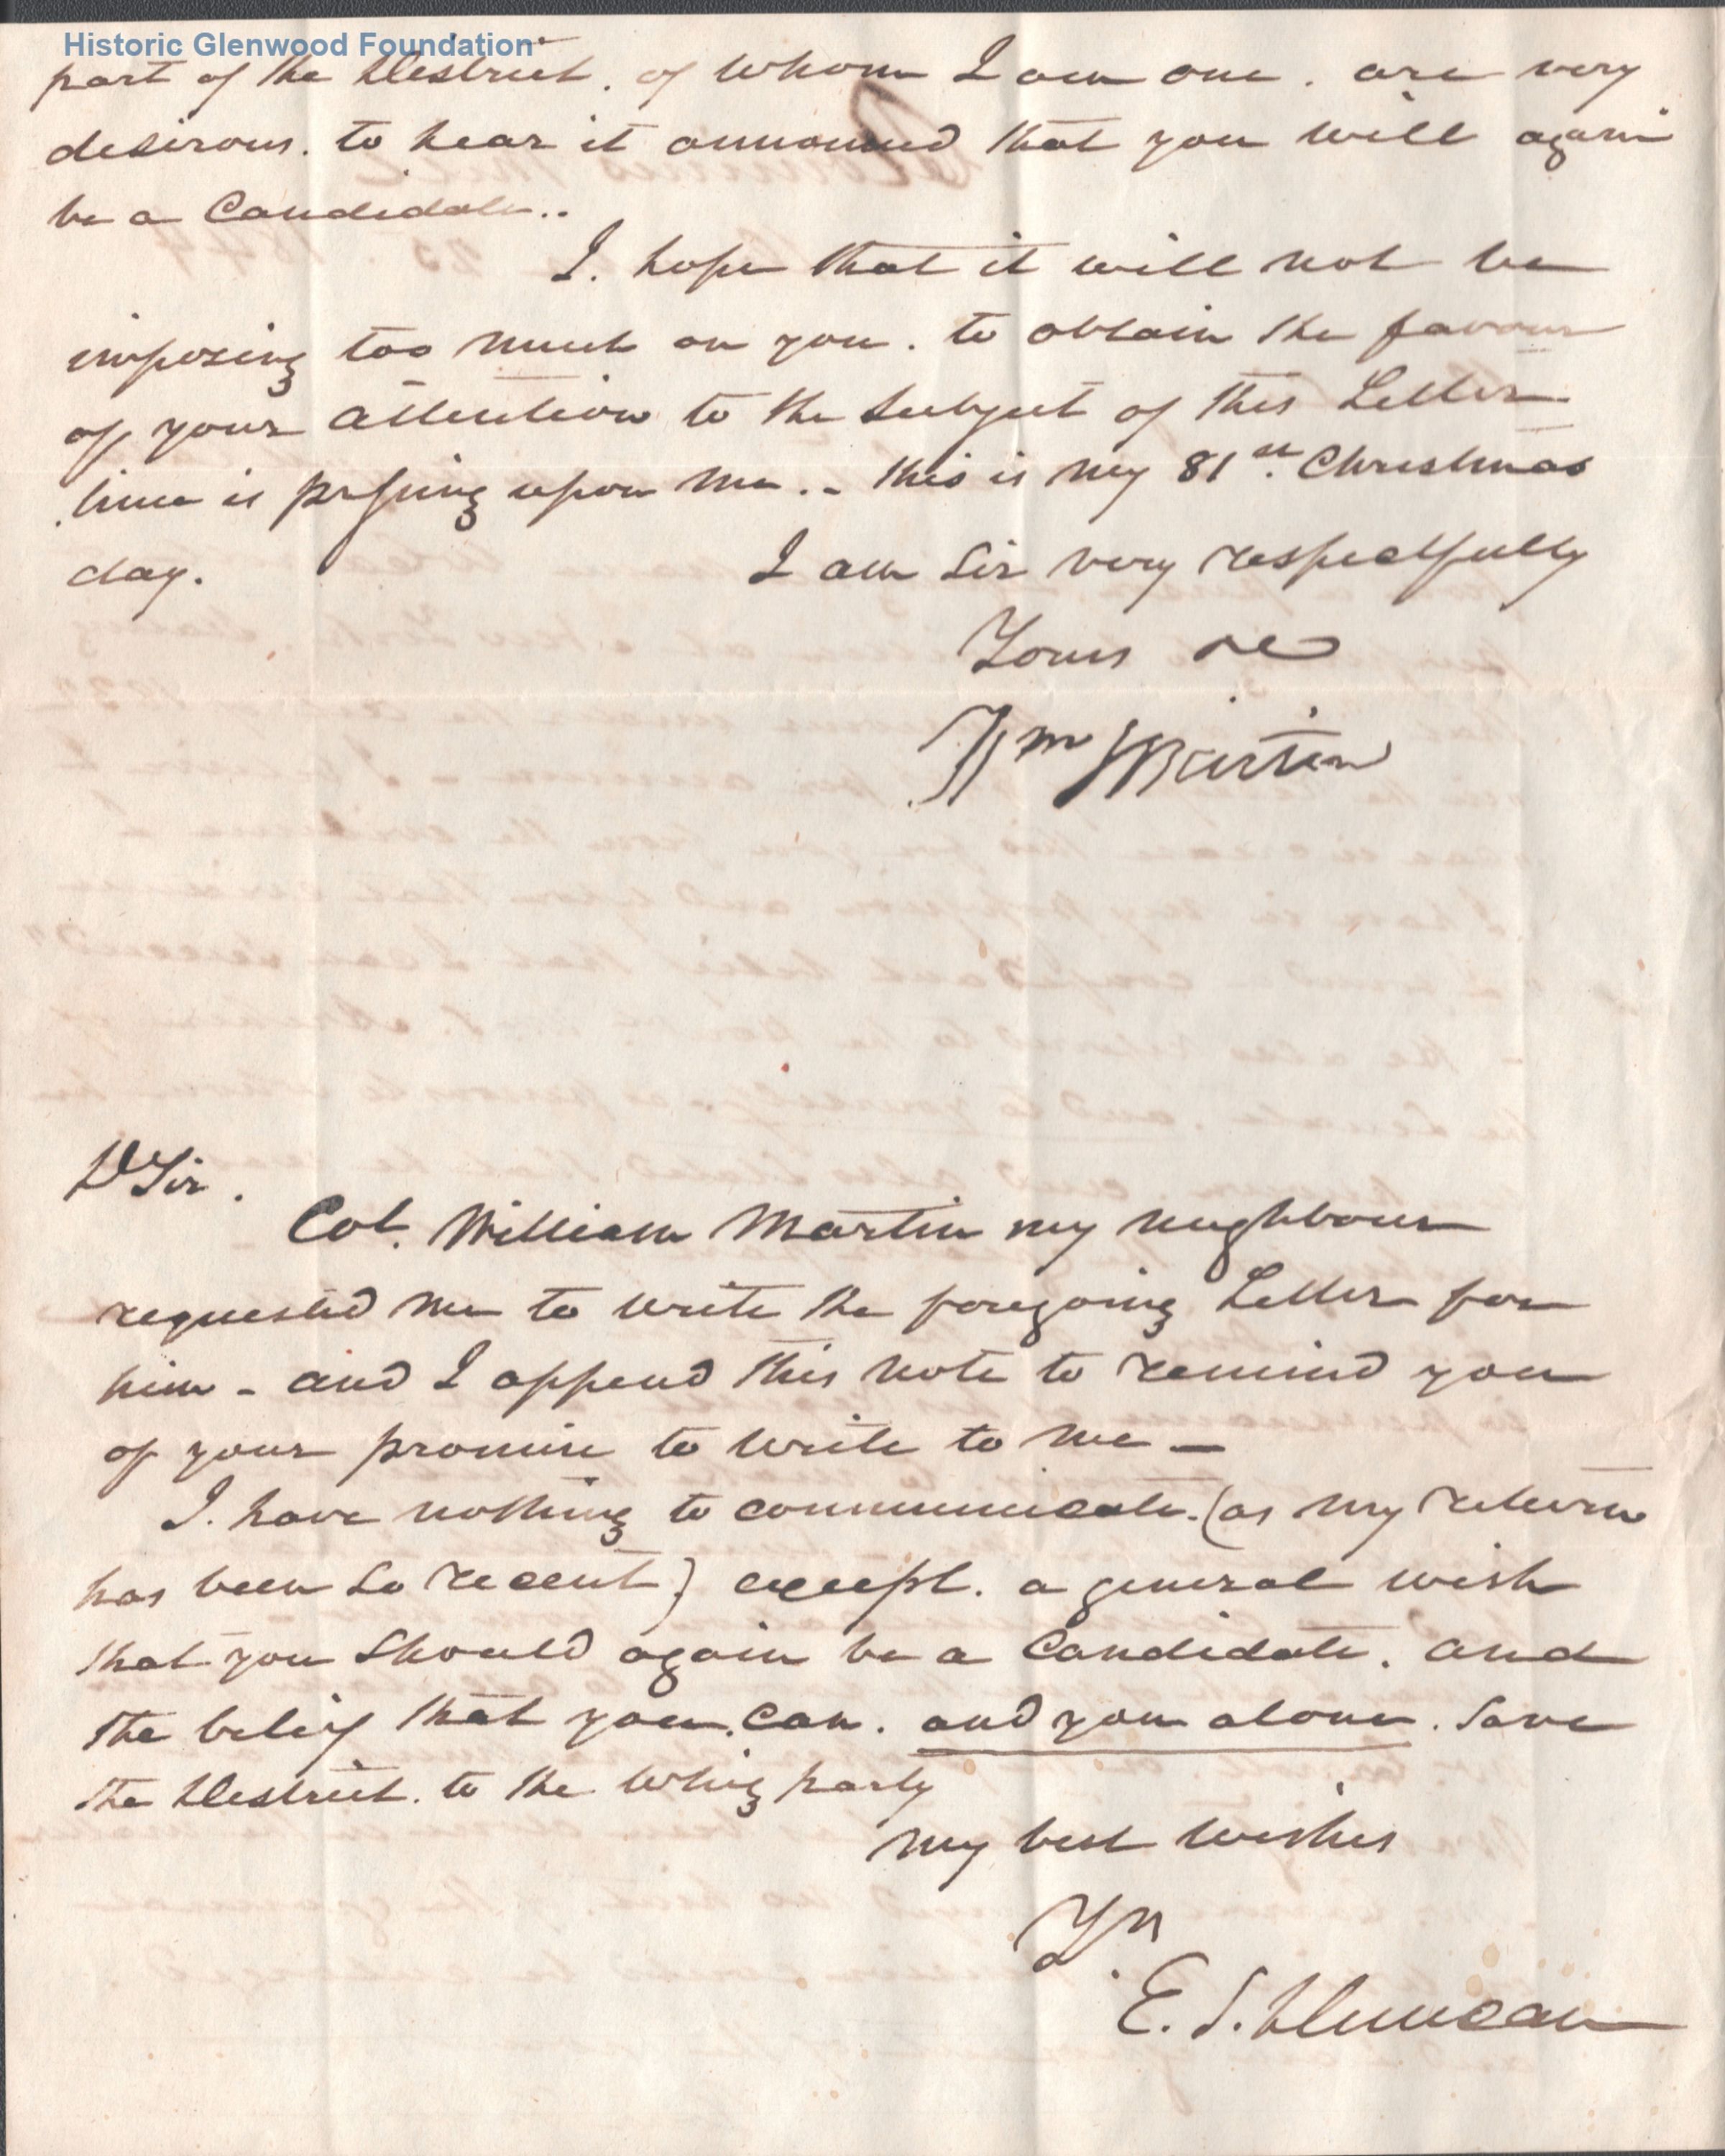 Historic Glenwood Foundation
part of the District. of whom I am one. are very
desirous. to hear it announced that you will again
be a Candidate..
I. hope that it will not be
imposing too much on you. to obtain the favour
of your attention to the subject of this Letter
time is pressing upon me.. this is my 81st. Christmas
day.
I am Sir very respectfully
Yours &c
Wm Martin
D Sir.
Col. William Martin my neighbour
requested me to write the foregoing Letter for
him - and I append this note to remind you
of your promise to write to me —
I. have nothing to communicate. (as my return
has been so recent) except. a general wish
that you should again be a Candidate. and
the belief that you. can. and you alone. save
the District. to the Whig party
my best wishes
Yrs
E. S. Duncan